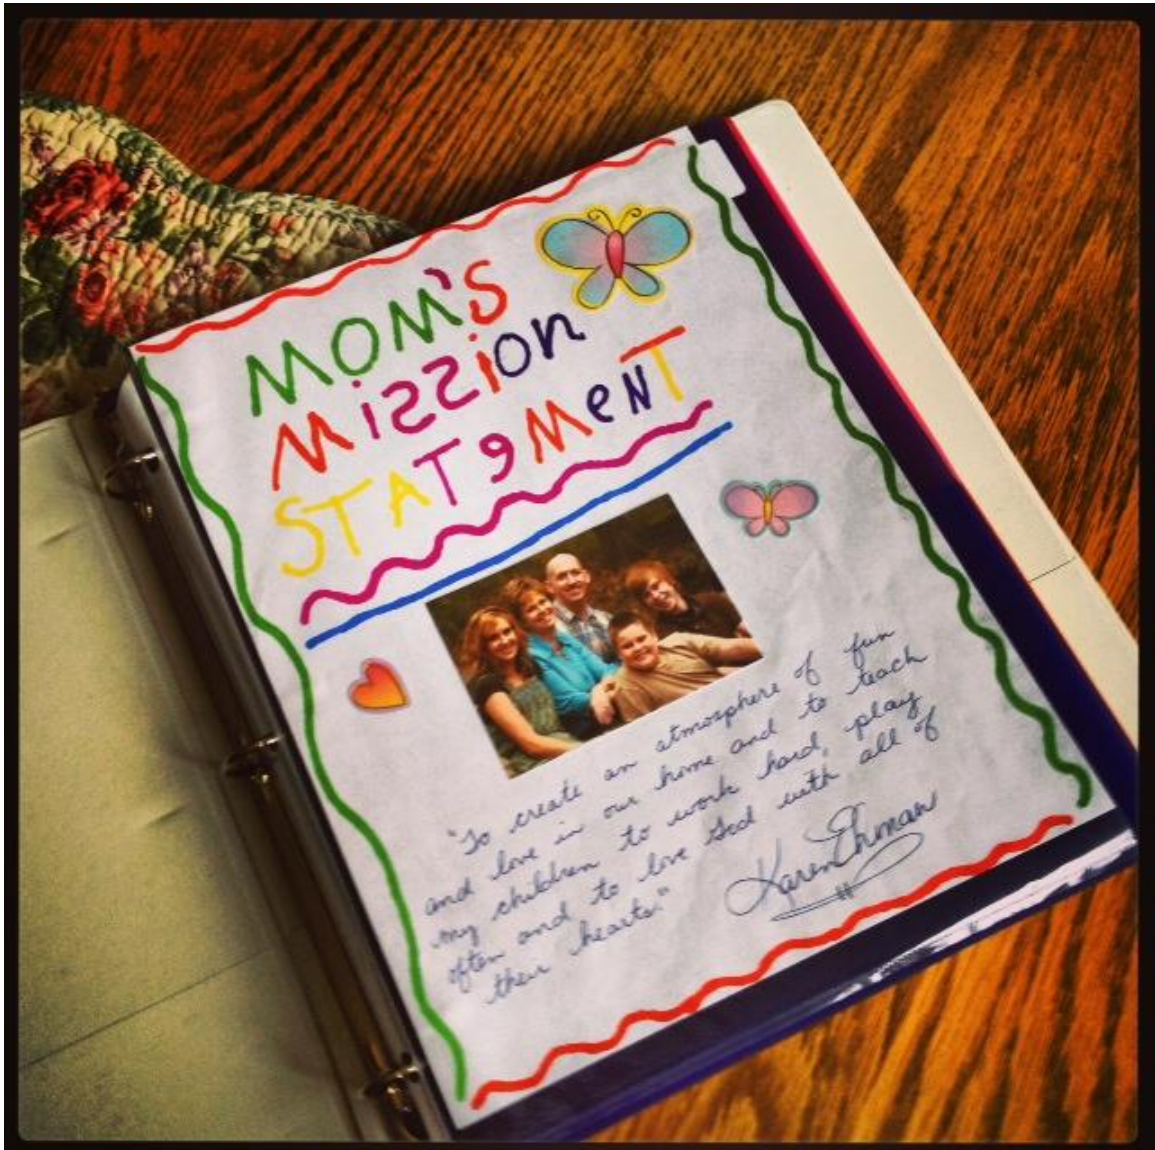 MOM'S
MiSSiON
STATeMeNT
"To create an atmosphere of fun
and love in our home and to teach
my children to work hard, play
often and to love God with all of
their hearts."
Karen Ehman